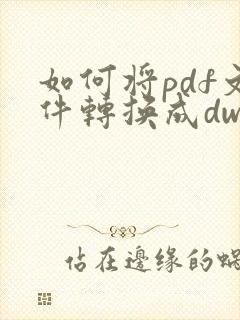 如何将pdf文
件轉換成dw
佔在邊缘的蝸